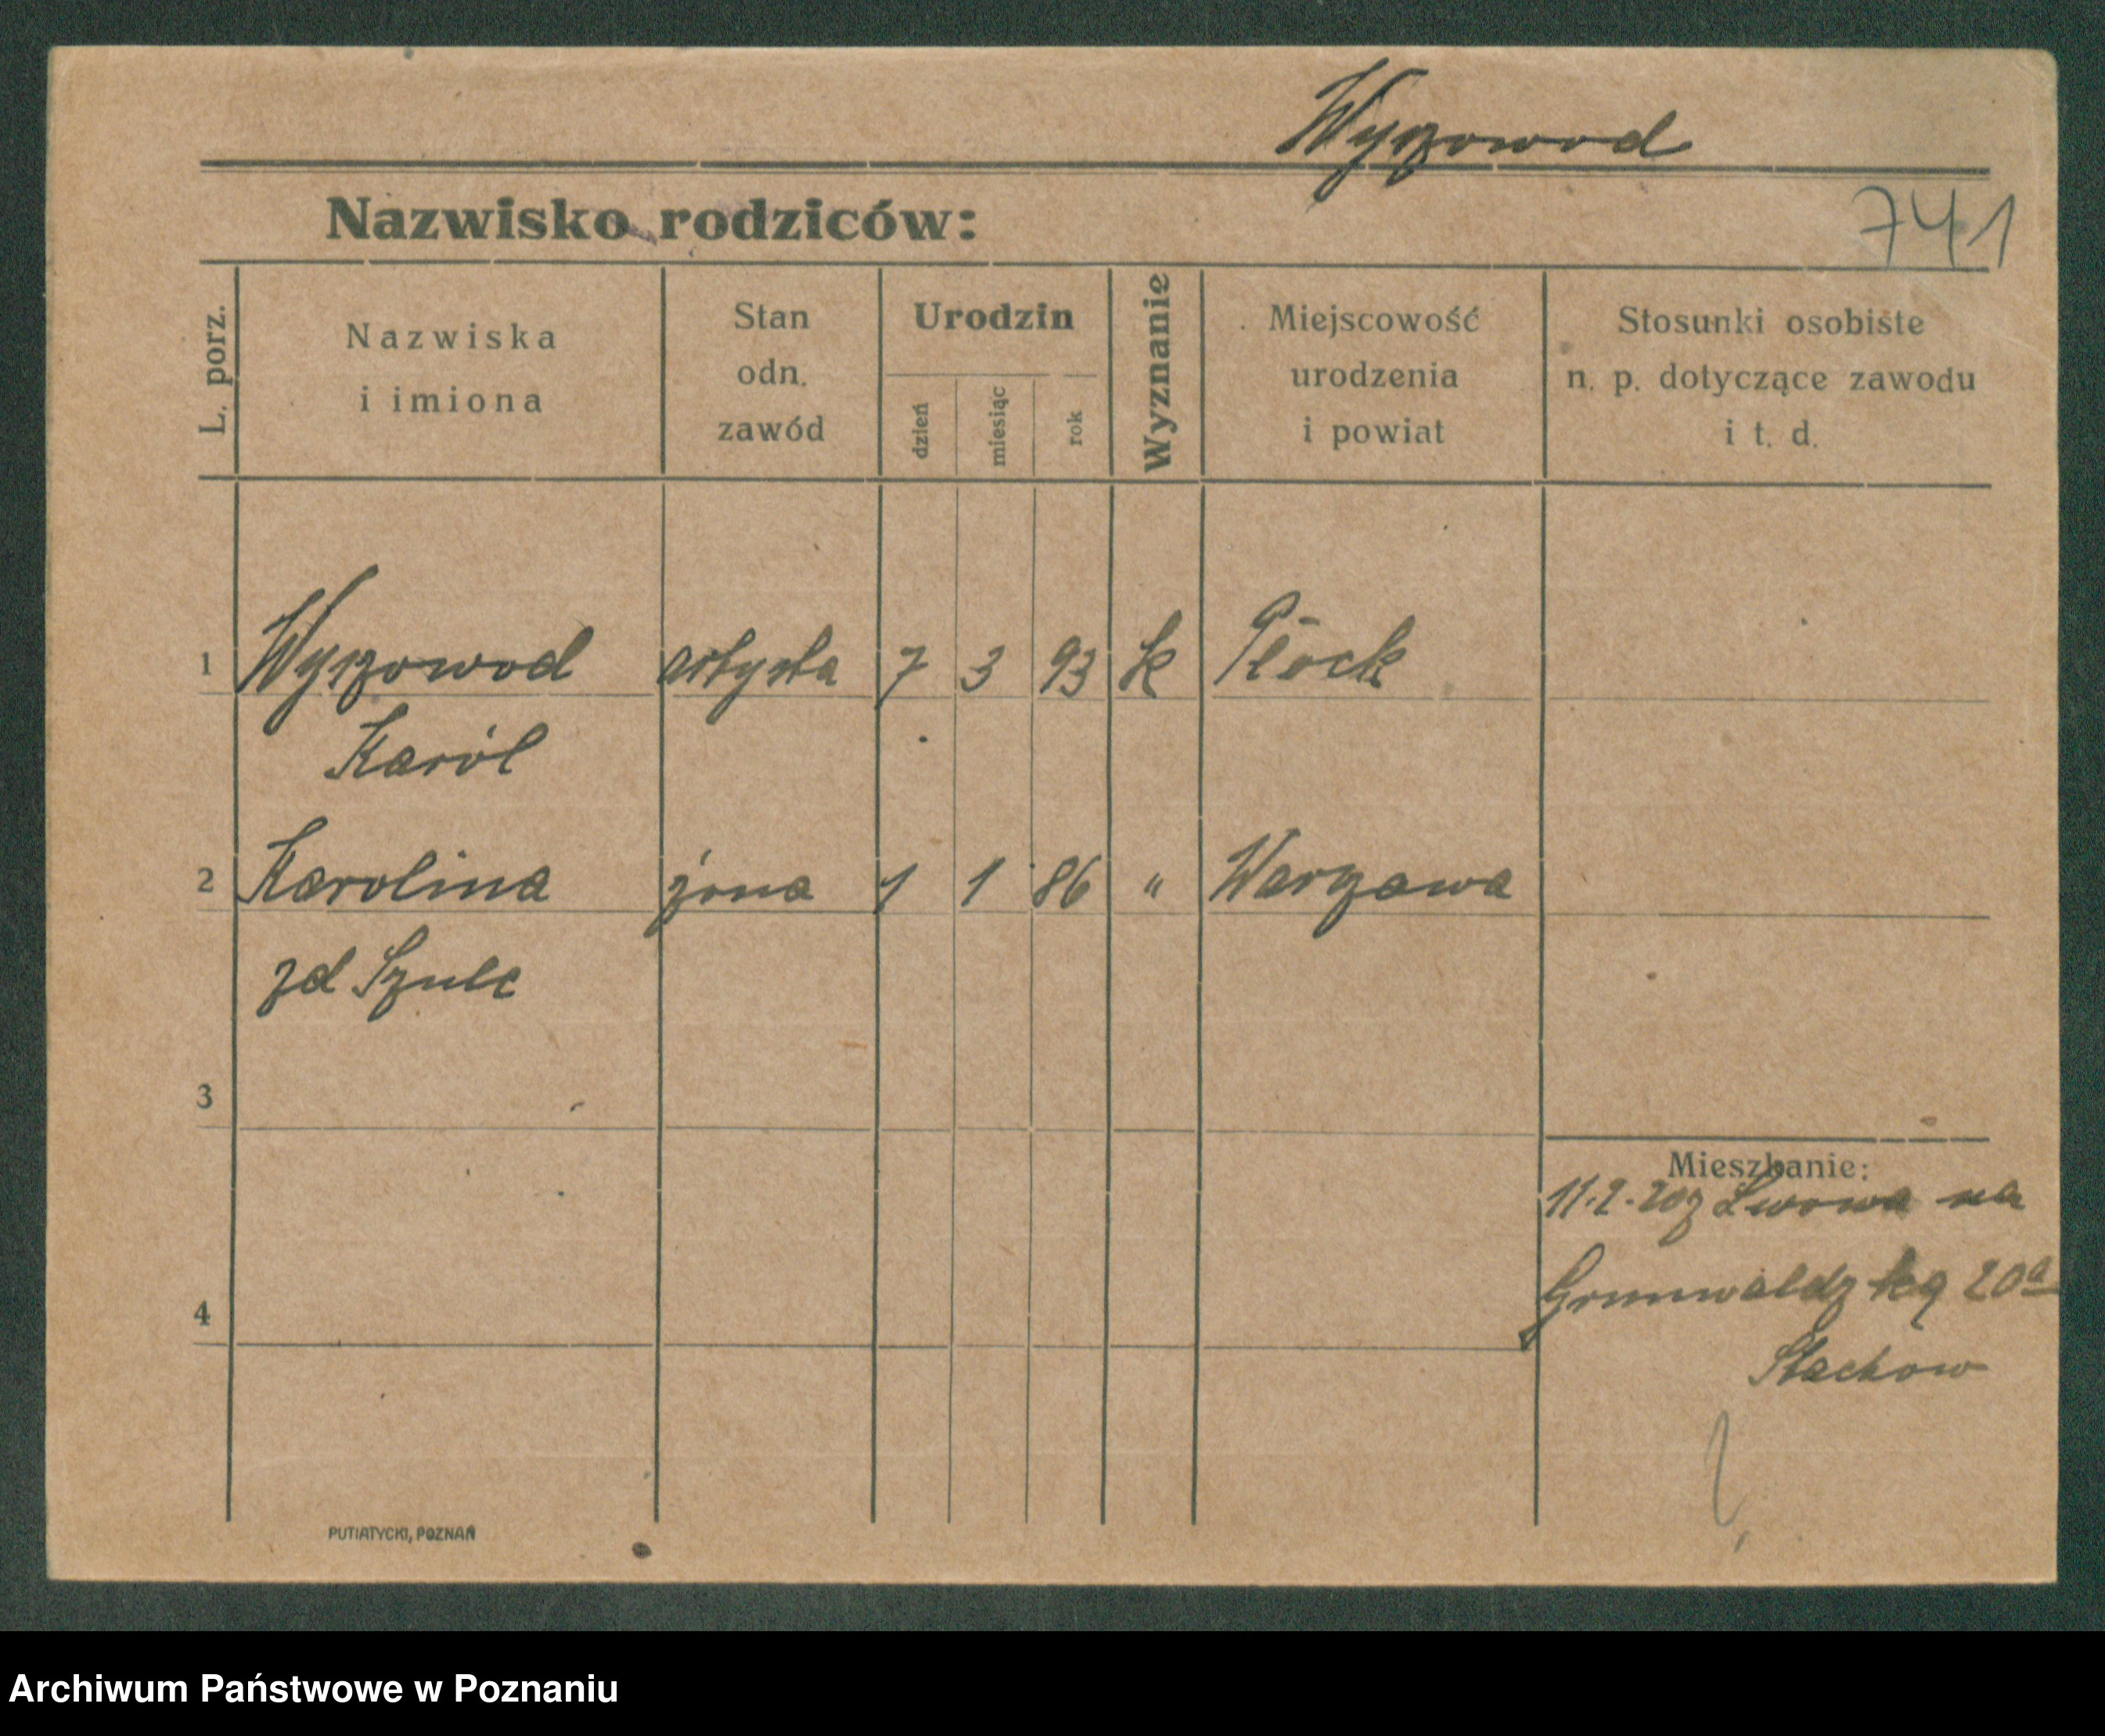 Wyszowod
Nazwisko rodziców:
741
L. porz.
Nazwiska
i imiona
Stan
odn.
zawód
Urodzin
dzień
miesiąc
rok
Wyznanie
Miejscowość
urodzenia
i powiat
Stosunki osobiste
n. p. dotyczące zawodu
i t. d.
1 Wyszowod artysta 7 3 93 k Płock
Karól
2 Karolina żona 1 1 86 " Warszawa
zd Szulc
3
Mieszkanie:
11.2.20 z Lwowa na
4
Grunwaldzką 20a
Stachow
PUTIATYCKI, POZNAŃ
Archiwum Państwowe w Poznaniu